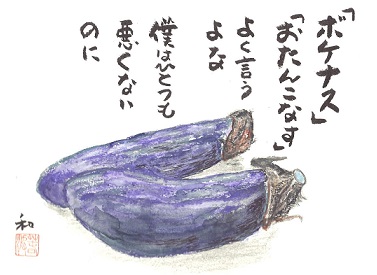 「ボケナス」
「おたんこなす」
よく言う
よな
僕はひとつも
悪くない
のに
和